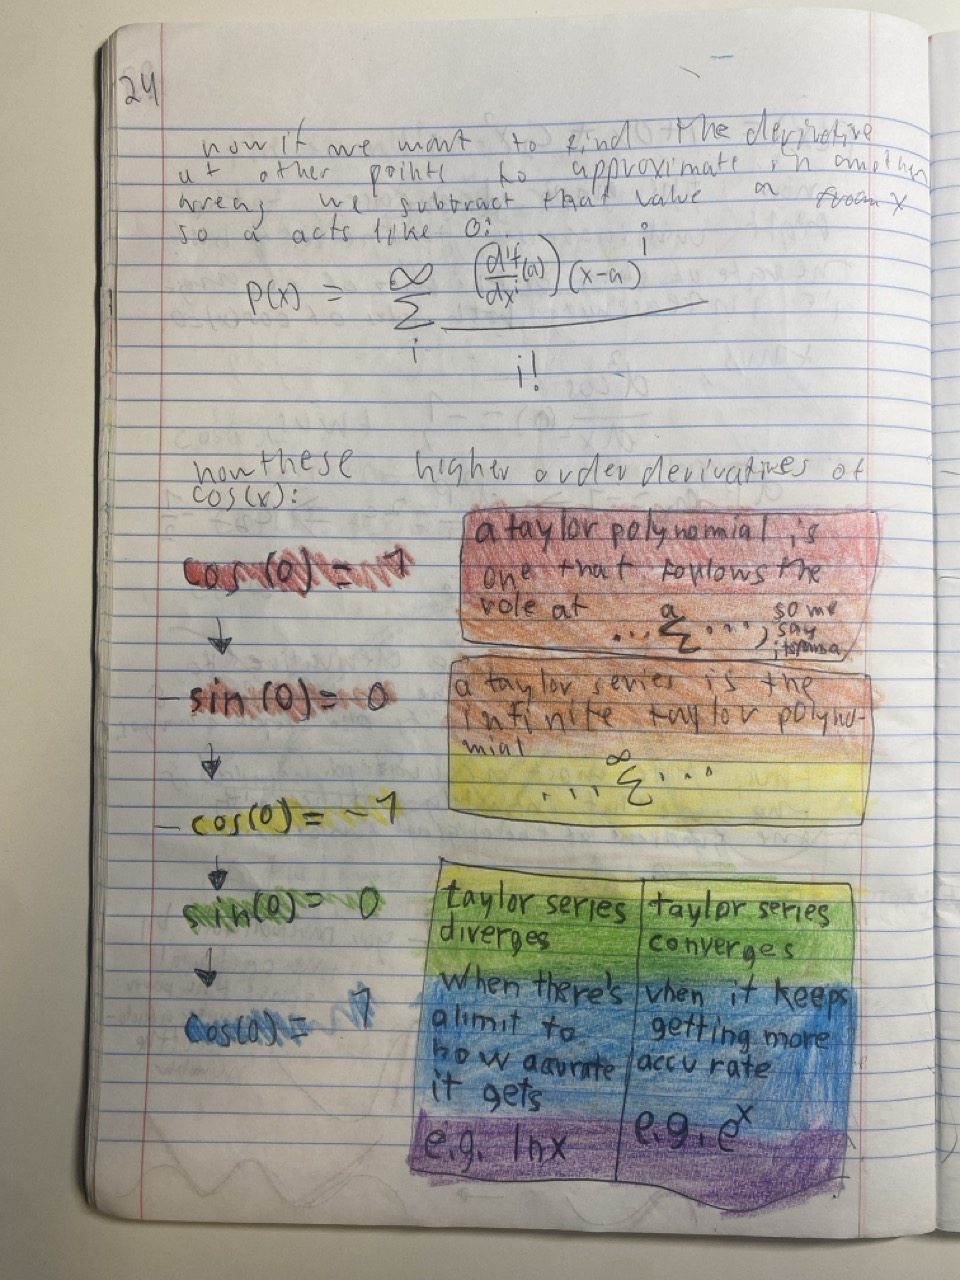 24
now if we want to find the derivative
at other points to approximate in another
area, we subtract that value a from x
so a acts like 0:
P(x) = ∞ ∑ i (dⁱf/dxⁱ(a)) (x-a)ⁱ / i!
now these higher order derivatives of
cos(x):
cos(0) = 1
↓
-sin(0) = 0
↓
-cos(0) = -1
↓
sin(0) = 0
↓
cos(0) = 1
a taylor polynomial is
one that follows the
role at ... a ∑ ..., some
say
a taylor series is the
infinite taylor polyno-
mial
... ∞ ∑ ...
taylor series
diverges
When there's
a limit to
how aaurate
it gets
e.g. lnx
taylor series
converges
when it keeps
getting more
accurate
e.g. eˣ